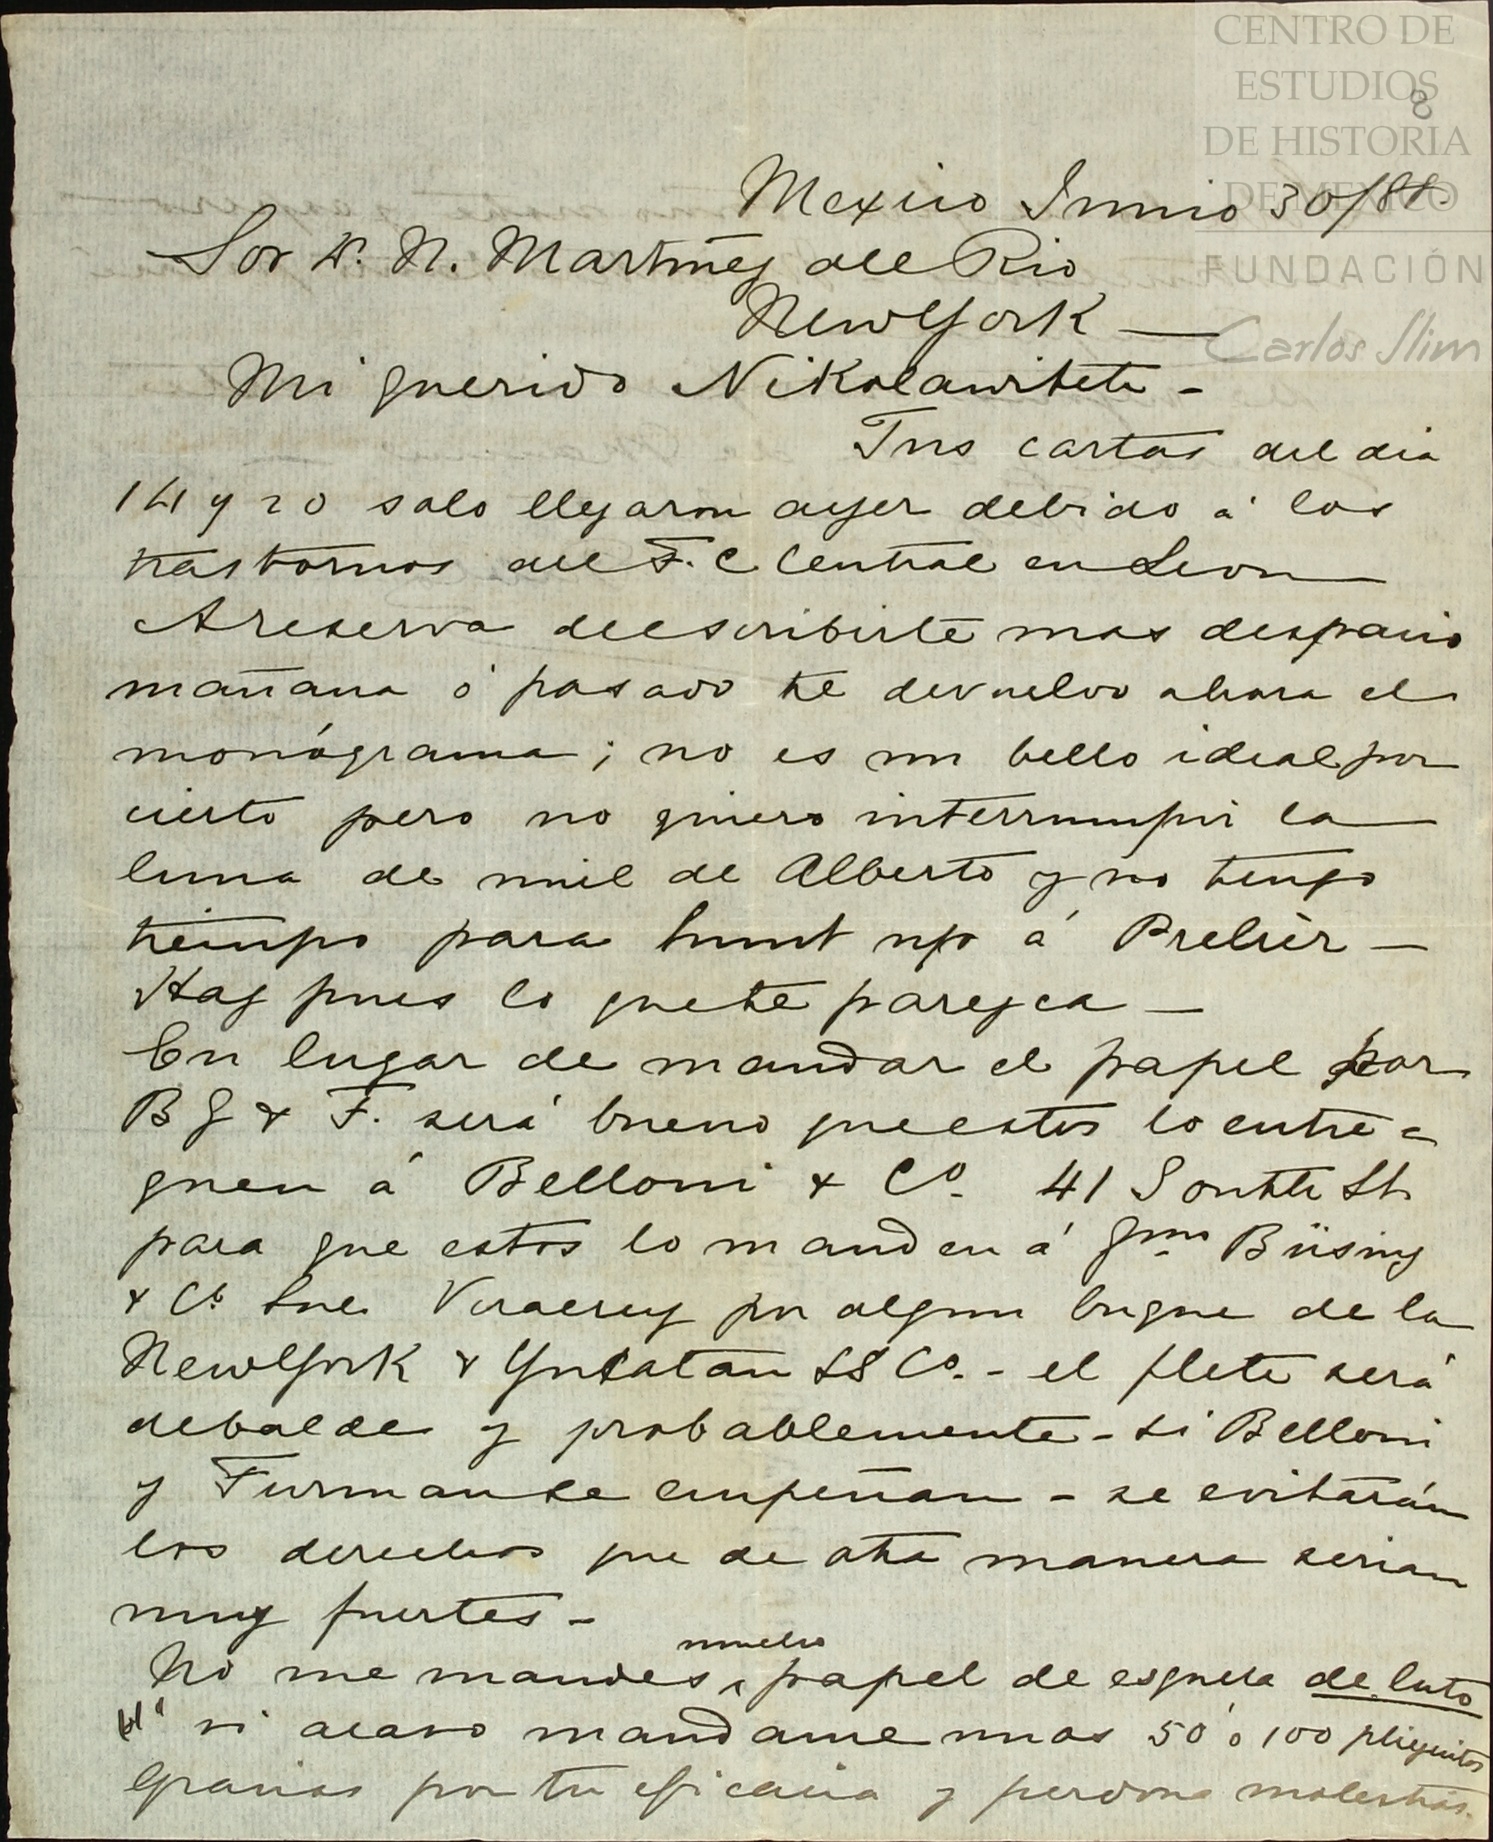 CENTRO DE
ESTUDIOS
DE HISTORIA
DE MÉXICO
FUNDACIÓN
Carlos Slim
8
Mexico Junio 30/88.
Sor D. N. Martínez del Rio
New York —
Mi querido Nikolawitch -
Tus cartas del dia
14 y 20 solo llegaron ayer debido á los
trastornos del F. C Central en Leon
A reserva de escribirte mas despacio
mañana ó pasado te devuelvo ahora el
monógrama; no es un bello ideal por
cierto pero no quiero interrumpir la
luna de miel de Alberto y no tengo
tiempo para hunt up á Prelier —
Haz pues lo que te parezca —
En lugar de mandar el papel por
B G & F. será bueno que estos lo entre=
guen á Belloni & Co. 41 South St.
para que estos lo manden á Gmo Büsing
& Co. Sucs Veracruz por algun buque de la
New York & Yucatan SS Co. - el flete será
debalde y probablemente - si Belloni
y Furman se empeñan - se evitarán
los derechos que de otra manera serian
muy fuertes -
mucho
No me mandes papel de esquela de luto
si acaso mandame unos 50 ó 100 plieguitos
Gracias por tu eficacia y perdona molestias.